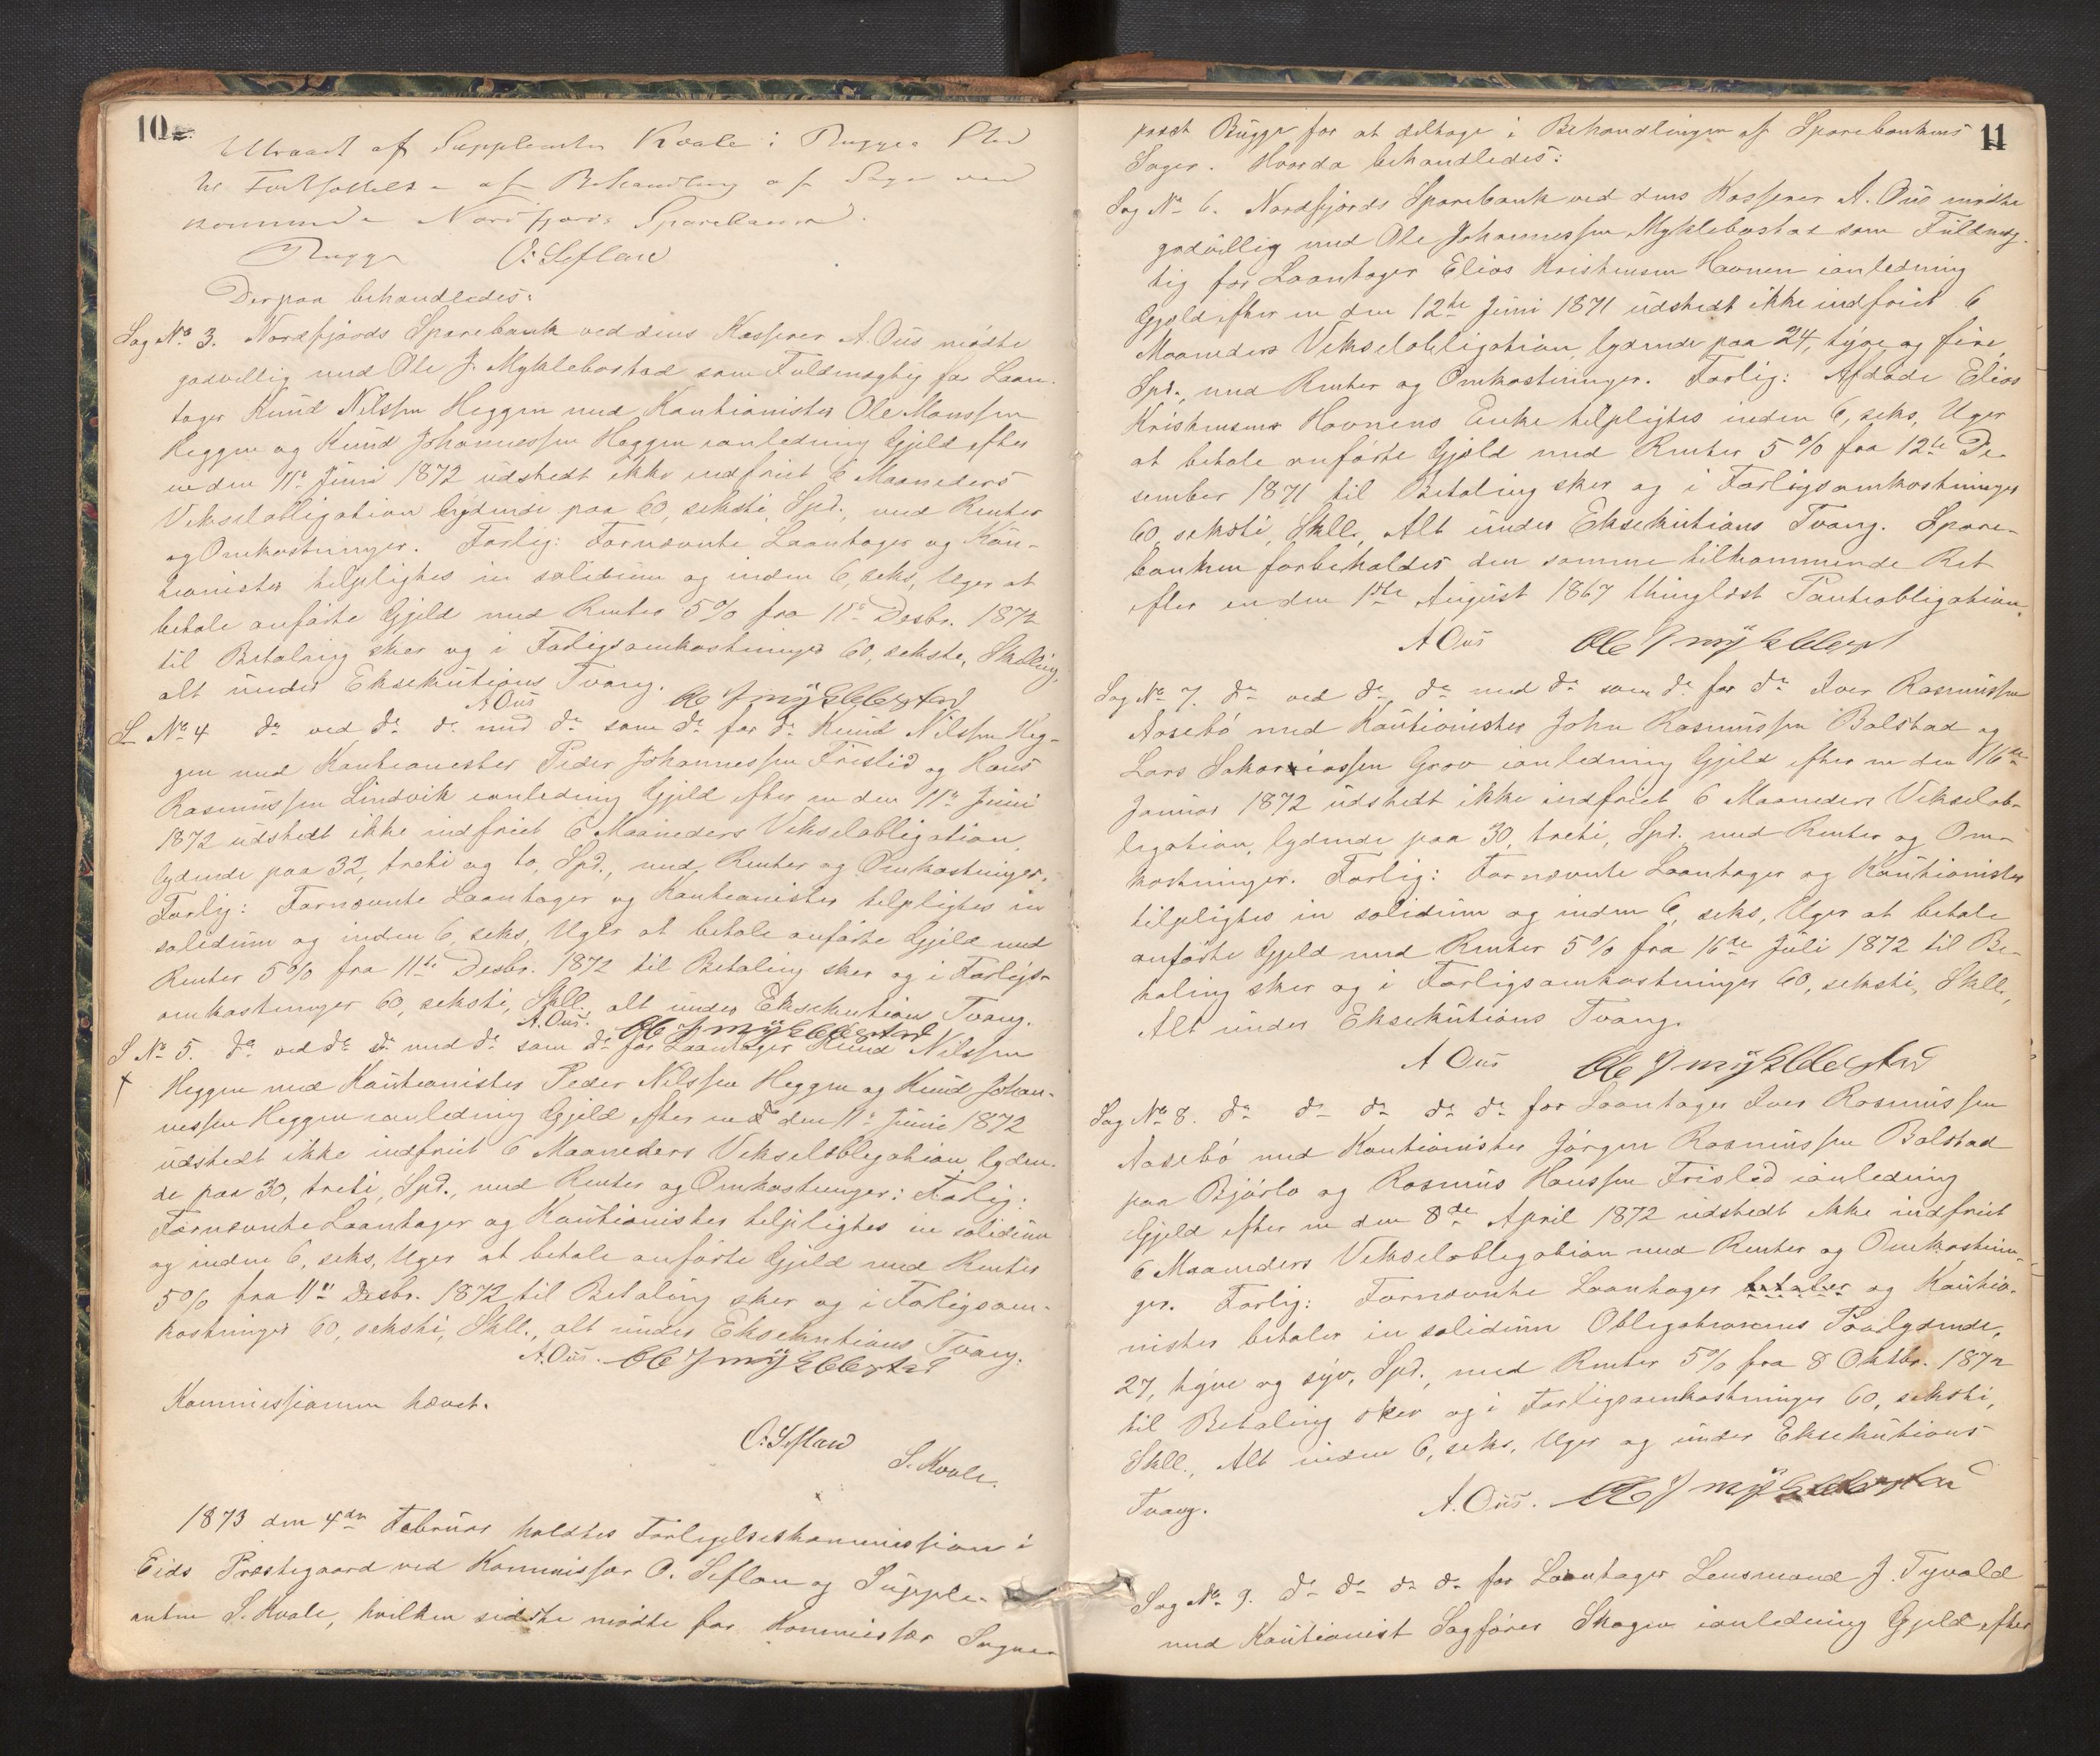 10
af Supplanten Kvale i Bugges Sted
til Fortsættelse af Behandling af Sager ved
kommende Nordfjords Sparebank.
Bugge O. Leflan
Derpaa behandledes:
Sag No 3. Nordfjords Sparebank ved dens Kasserer A. Ous mödte
godvillig med Ole J. Myklebostad som Fuldmægtig for Laan-
tager Knud Nilssen Heggen med Kautionister Ole Monssen
Heggen og Knud Johannessen Heggen ianledning Gjeld efter
en den 11te Juni 1872 udstedt ikke indfriet 6 Maaneders
Vekselobligation lydende paa 60, seksti, Spd., med Renter
og Omkostninger. Forlig: Fornævnte Laantager og Kau-
tionister tilpligtes in solidum og inden 6, seks, Uger at
betale anförte Gjeld med Renter 5% fra 11te Desbr. 1872
til Betaling sker og i Forligsomkostninger 60, seksti, Skilling,
alt under Eksekutions Tvang.
A Ous Ole J Myklebostad
S No 4 do ved do do med do som do for do Knud Nilssen Heg-
gen med Kautionister Peder Johannessen Frislid og Hans
Rasmussen Lindvik ianledning Gjeld efter en den 11te Juni
1872 udstedt ikke indfriet 6 Maaneders Vekselobligation,
lydende paa 32, treti og to, Spd., med Renter og Omkostninger.
Forlig: Fornævnte Laantager og Kautionister tilpligtes in
solidum og inden 6, seks, Uger at betale anförte Gjeld med
Renter 5% fra 11te Desbr. 1872 til Betaling sker og i Forligs-
omkostninger 60, seksti, Skll. alt under Eksekutions Tvang.
A. Ous. Ole J Myklebostad
S No 5. do ved do do med do som do for Laantager Knud Nilssen
Heggen med Kautionister Peder Nilssen Heggen og Knud Johan-
nessen Heggen ianledning Gjeld efter en den 11te Juni 1872
udstedt ikke indfriet 6 Maaneders Vekselobligation lyden-
de paa 30, treti, Spd., med Renter og Omkostninger: Forlig:
Fornævnte Laantager og Kautionister tilpligtes in solidum
og inden 6, seks, Uger at betale anförte Gjeld med Renter
5% fra 11te Desbr. 1872 til Betaling sker og i Forligsom-
kostninger 60, seksti, Skll., alt under Eksekutions Tvang.
A. Ous. Ole J Myklebostad
Kommissionen hævet.
O. Leflan
S. Kvale.
1873 den 4de Februar holdtes Forligelseskommission i
Eids Præstegaard ved Kommissær O. Leflan og Supple-
anten S. Kvale, hvilken sidste mödte for Kommissær Sogne-
11
præst Bugge for at deltage i Behandlingen af Sparebankens
Sager. Hvorda behandledes:
Sag No 6. Nordfjords Sparebank ved dens Kasserer A. Ous mödte
godvillig med Ole Johannessen Myklebostad som Fuldmæg-
tig for Laantager Elias Kristensen Havnen ianledning
Gjæld efter en den 12te Juni 1871 udstedt ikke indfriet 6
Maaneders Vekselobligation, lydende paa 24, tyve og fire
Spd., med Renter og Omkostninger. Forlig: Afdöde Elias
Kristensens Havnens Enke tilpligtes inden 6, seks, Uger
at betale anförte Gjæld med Renter 5% fra 12te De-
sember 1871 til Betaling sker og i Forligsomkostninger
60, seksti, Skll., Alt under Eksekutions Tvang. Spare-
banken forbeholdes den samme tilkommende Ret
efter en den 1ste August 1867 thinglæst Panteobligation.
A Ous Ole J Myklebost
Sag No 7. do ved do do med do som do for do Iver Rasmussen
Aasebö med Kautionister John Rasmussen Bolstad og
Lars Sakariassen Grov ianledning Gjeld efter en den 16de
Januar 1872 udstedt ikke indfriet 6 Maaneders Vekselob-
ligation, lydende paa 30, treti, Spd., med Renter og Om-
kostninger. Forlig: Fornævnte Laantager og Kautionister
tilpligtes in solidum og inden 6, seks, Uger at betale
anförte Gjeld med Renter 5% fra 16de Juli 1872 til Be-
taling sker og i Forligsomkostninger 60, seksti, Skll.,
Alt under Eksekutions Tvang.
A Ous Ole J Myklebostad
Sag No 8. do do do do do for Laantager Iver Rasmussen
Aasebö med Kautionister Jörgen Rasmussen Bolstad
paa Bjórlo og Rasmus Hanssen Frislid ianledning
Gjeld efter en den 8de April 1872 udstedt ikke indfriet
6 Maaneders Vekselobligation med Renter og Omkostnin-
ger. Forlig: Fornævnte Laantager betaler og Kautio-
nister betaler in solidum Obligationens Paalydende,
27, tyve og syv, Spd., med Renter 5% fra 8 Oktbr. 1872
til Betaling sker og i Forligsomkostninger 60, seksti,
Skll., Alt inden 6, seks, Uger og under Eksekutions
Tvang.
A. Ous. Ole J Myklebostad
Sag No 9. do do do do for Laantager Lensmand J. Tyvold
med Kautionist Sagförer Skagen ianledning Gjeld efter